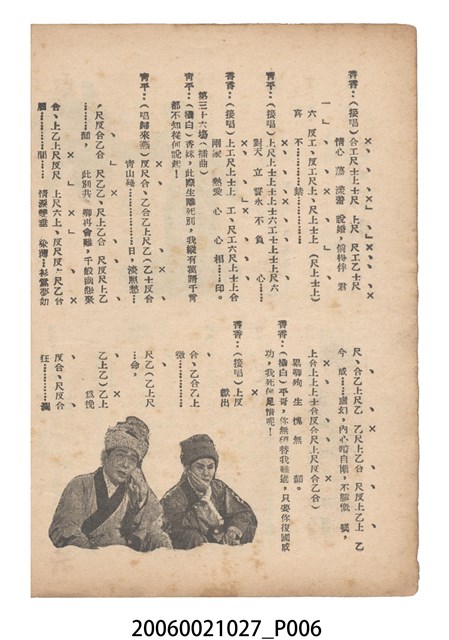 香香：（接唱）合工尺士上尺 上尺 尺工乙士尺
情心 蕩 漾著 說婚，偕侍伴 君
六 反工、反工尺上、尺上尺上 （尺上士上）
真 不………錯………
青平：（接唱）上尺上士上士上士六工尺上尺六
對天 立 誓永 不 負 心……
香香：（接唱）上工尺上士上 工、尺工六尺上士上合
兩家 熱愛 心 心 相…印。
第三十六場（插曲）
青平：（橋白）香妹，此際生離死別，我縱有萬語千言
都不知從何說起！
青平：（唱歸來燕）反尺合、乙合乙上尺乙（乙士反合
青山綠………日，淡照愁…
尺反乙合 尺乙乙、尺上乙合 尺反尺上乙
……顏， 此別共 聊再會難，千般幽怨聚
合、上乙上尺反尺 上尺六上、反尺反、尺乙合
眉………間… 情淚雙垂
尺、合乙上尺乙 尺乙上乙合 尺反上乙上 乙
今 成……虛幻，內心暗自慚，不
上合上上上士合反合尺上尺反合乙合）
生 愧 無 顏。
香香：（橋白）平哥，你無須替我難過，只要你復國成
功，我死何足惜呢！
香香：（接唱）上反
獻出
合、乙合乙上
微………
尺乙（乙上尺
…命，
乙上乙）乙上
為挽
反合、尺反合
狂………瀾
20060021027_P006